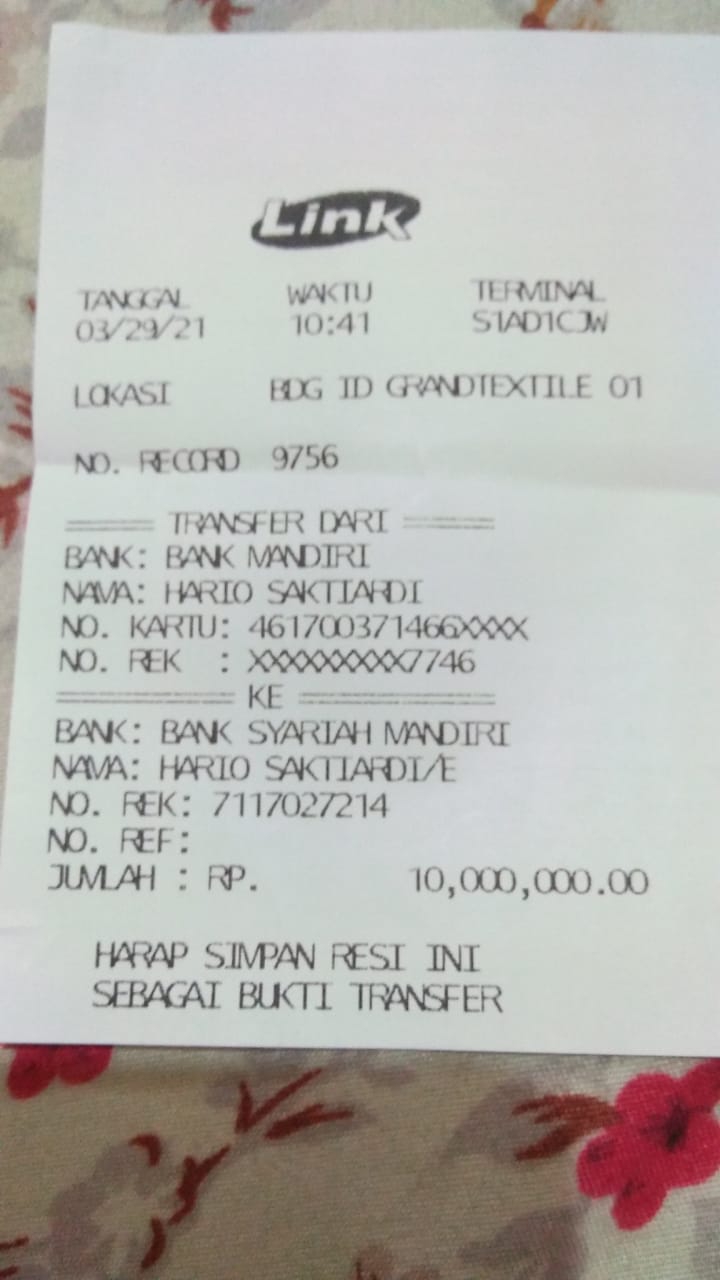 Link
TANGGAL WAKTU TERMINAL
03/29/21 10:41 S1AD1CJW
LOKASI BDG ID GRANDTEXTILE 01
NO. RECORD 9756
====== TRANSFER DARI ======
BANK: BANK MANDIRI
NAMA: HARIO SAKTIARDI
NO. KARTU: 461700371466XXXX
NO. REK : XXXXXXXXX7746
============ KE =============
BANK: BANK SYARIAH MANDIRI
NAMA: HARIO SAKTIARDI/E
NO. REK: 7117027214
NO. REF:
JUMLAH : RP. 10,000,000.00
HARAP SIMPAN RESI INI
SEBAGAI BUKTI TRANSFER